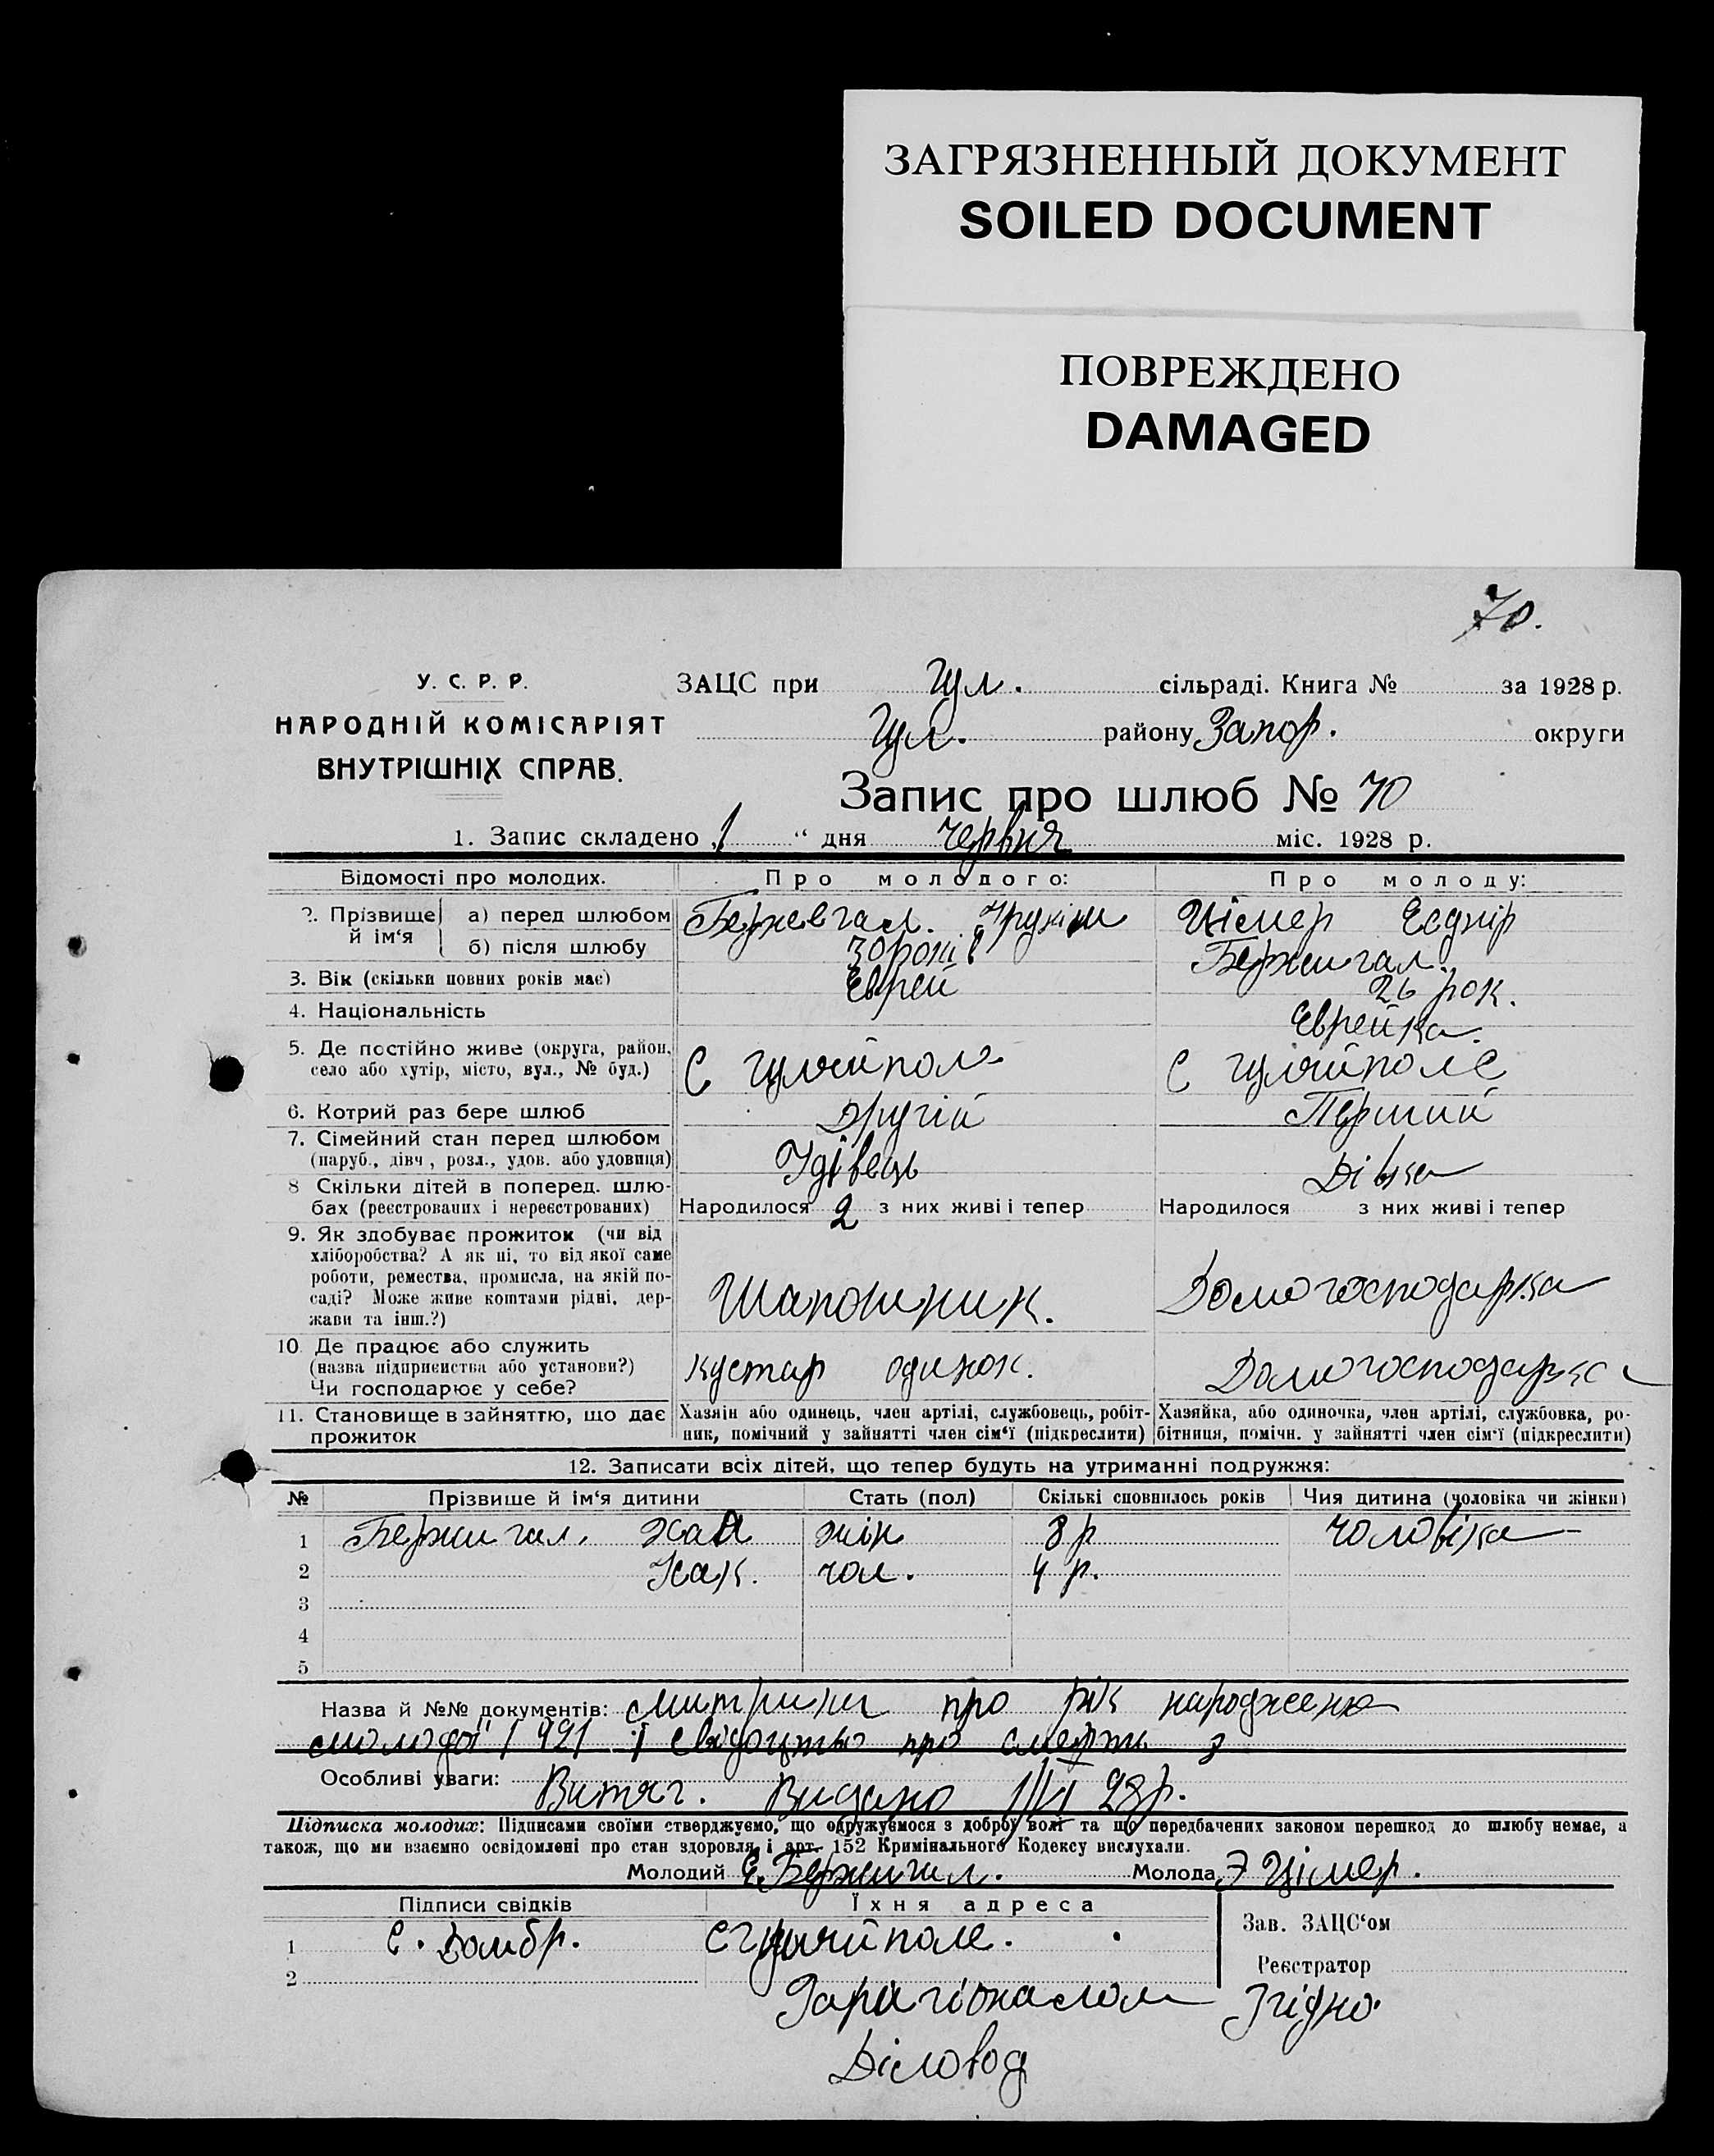 ЗАГРЯЗНЕННЫЙ ДОКУМЕНТ
SOILED DOCUMENT
ПОВРЕЖДЕНО
DAMAGED
70.
У. С. Р. Р.
НАРОДНІЙ КОМІСАРІЯТ
ВНУТРІШНІХ СПРАВ.
ЗАЦС при Гул. сільраді. Книга № за 1928 р.
Гул. району Запор. округи
Запис про шлюб № 70
1. Запис складено „1“ дня червня міс. 1928 р.
Відомості про молодих. Про молодого: Про молоду:
2. Прізвище й ім‘я а) перед шлюбом Цімер
б) після шлюбу Бержигал.
3. Вік (скільки повних років має) 30 років 26 рок.
4. Національність Еврей Еврейка.
5. Де постійно живе (округа, район, село або хутір, місто, вул., № буд.) С Гуляйполе С Гуляйполе
6. Котрий раз бере шлюб Другій Перший
7. Сімейний стан перед шлюбом (паруб., дівч., розл., удов. або удовиця) Удівець Дівка
8 Скільки дітей в поперед. шлюбах (реєстрованих і нереєстрованих) Народилося 2 з них живі і тепер Народилося з них живі і тепер
9. Як здобуває прожиток (чи від хліборобства? А як ні, то від якої саме роботи, ремества, промисла, на якій посаді? Може живе коштами рідні, держави та інш.?) Шапошник. Домогосподарка
10. Де працює або служить (назва підприємства або установи?) Чи господарює у себе? Кустар одинок. Домогосподарка
11. Становище в зайняттю, що дає прожиток Хазяін або одинець, член артілі, службовець, робітник, помічний у зайнятті член сім‘ї (підкреслити) Хазяйка, або одиночка, член артілі, службовка, робітниця, помічн. у зайнятті член сім‘ї (підкреслити)
12. Записати всіх дітей, що тепер будуть на утриманні подружжя:
№ Прізвише й ім‘я дитини Стать (пол) Скількі сповнилось років Чия дитина (чоловіка чи жінки)
1 Бержигал. Хая жін 8 р чоловіка
2 чол. 4 р.
3
4
5
Назва й №№ документів: митрики про рік народженя
молодої 1921 і свідоцтво про смерть
Особливі уваги: Витяг. Видано 1/VI 28 р.
Підписка молодих: Підписами своїми стверджуємо, що одружуємося з доброї волі та що передбачених законом перешкод до шлюбу немає, а
також, що ми взаємно освідомлені про стан здоровля і арт. 152 Кримінального Кодексу вислухали.
Молодий Є. Бержигал. Молода Э Цімер.
Підписи свідків Їхня адреса Зав. ЗАЦС‘ом
1 Є. Домбр. С Гуляйполе.
2 Реєстратор
Згідно.
Діловод